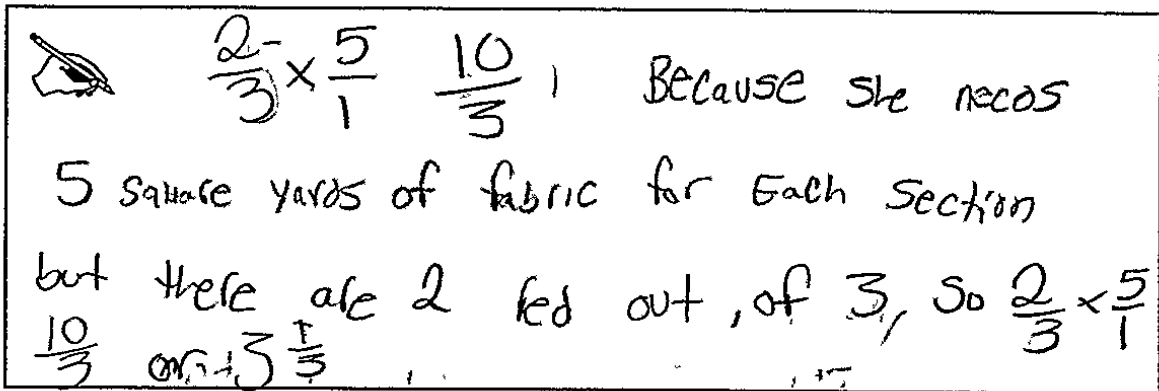 2/3 × 5/1 10/3, Because she needs
5 square yards of fabric for Each Section
but there are 2 red out, of 3, So 2/3 × 5/1
10/3 or 3 1/3